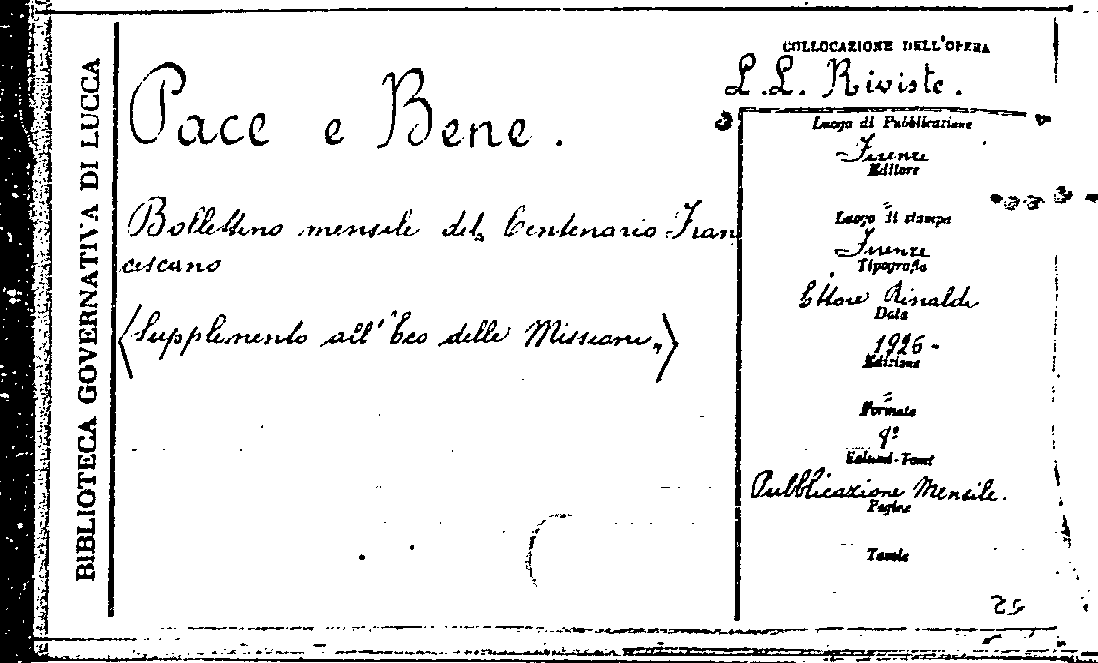 BIBLIOTECA GOVERNATIVA DI LUCCA
Pace e Bene.
Bollettino mensile del Centenario Fran
cescano
(Supplemento all'Eco delle Missioni„)
COLLOCAZIONE DELL'OPERA
L.L. Riviste.
Luogo di Pubblicazione
Firenze
Editore
Luogo di stampa
Firenze
Tipografia
Ettore Rinaldi
Data
1926-
Edizione
Formato
Volumi-Tomi
Pubblicazione Mensile.
Pagine
Tavole